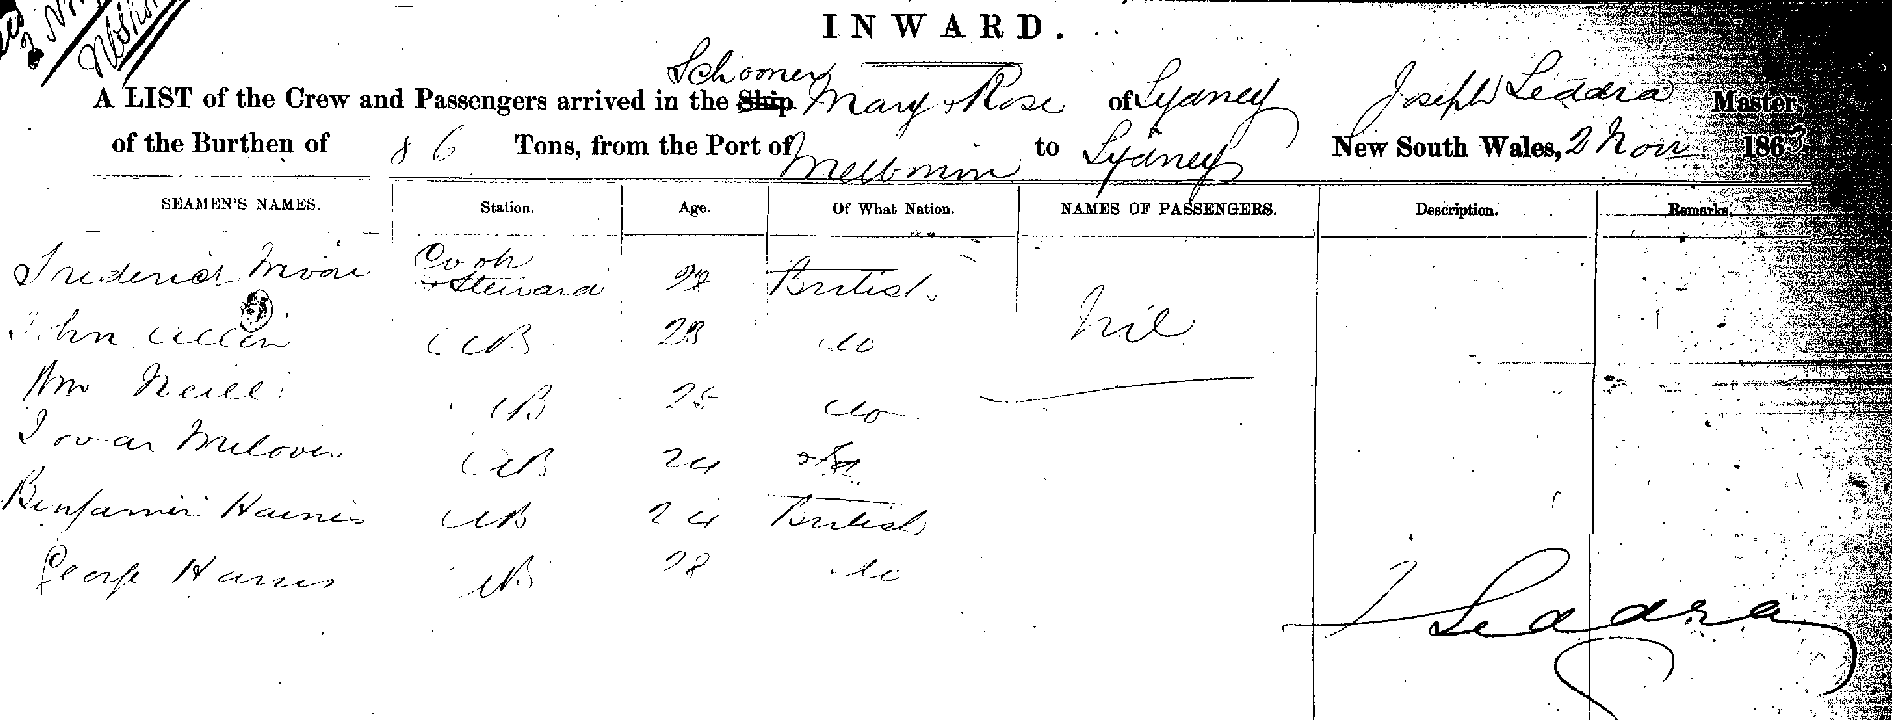 INWARD.
Schooner
A LIST of the Crew and Passengers arrived in the Ship Mary & Rose of Sydney Joseph Leddra Master
of the Burthen of 86 Tons, from the Port of Melbourne to Sydney New South Wales, 2 Nov 186
SEAMEN'S NAMES. Station. Age. Of What Nation. NAMES OF PASSENGERS. Description. Remarks.
Frederick Moore Cook & Steward 28 British Nil
John Allen AB 23 do
Wm Neill AB 25 do
AB 24
Benjamin Haines AB 24 British
George Harris AB 28 do
J Leddra